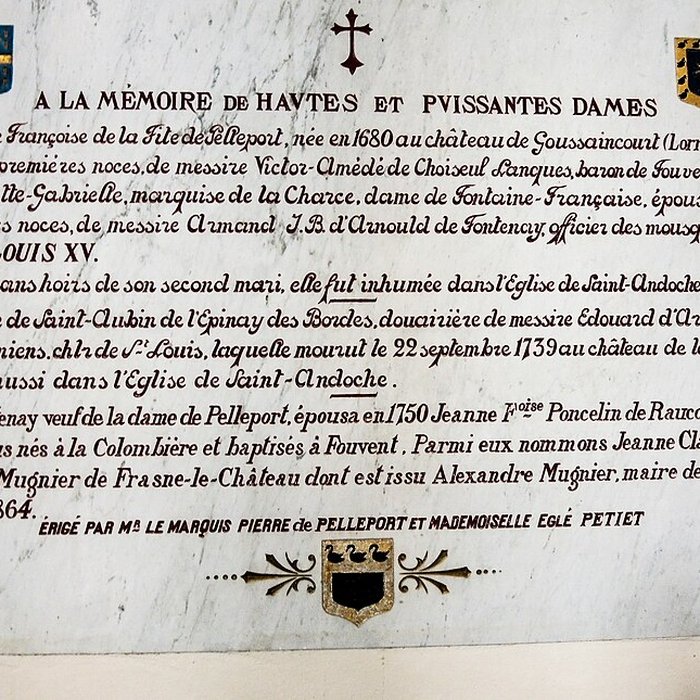 A LA MÉMOIRE DE HAVTES ET PVISSANTES DAMES
Françoise de la Fite de Pelleport, née en 1680 au château de Goussaincourt (Lorr
premiéres noces, de messire Victor-Amédé de Choiseul Lanques, baron de Fouve
tte-Gabrielle, marquise de la Charce, dame de Fontaine-Française, épous
s noces, de messire Armand J.B. d'Arnould de Fontenay, officier des mousq
LOUIS XV.
ans hoirs de son second mari, elle fut inhumée dans l'Eglise de Saint-Andoche
de Saint-Aubin de l'Epinay des Bordes, douairière de messire Edouard d'Ar
miens, chlr de St. Louis, laquelle mourut le 22 septembre 1739 au château de la
aussi dans l'Eglise de Saint-Andoche.
enay veuf de la dame de Pelleport, épousa en 1750 Jeanne Foise Poncelin de Rauco
us nés à la Colombière et baptisés à Fouvent. Parmi eux nommons Jeanne Cla
Mugnier de Frasne-le-Château dont est issu Alexandre Mugnier, maire de
864.
ÉRIGÉ PAR MR LE MARQUIS PIERRE de PELLEPORT ET MADEMOISELLE EGLÉ PETIET